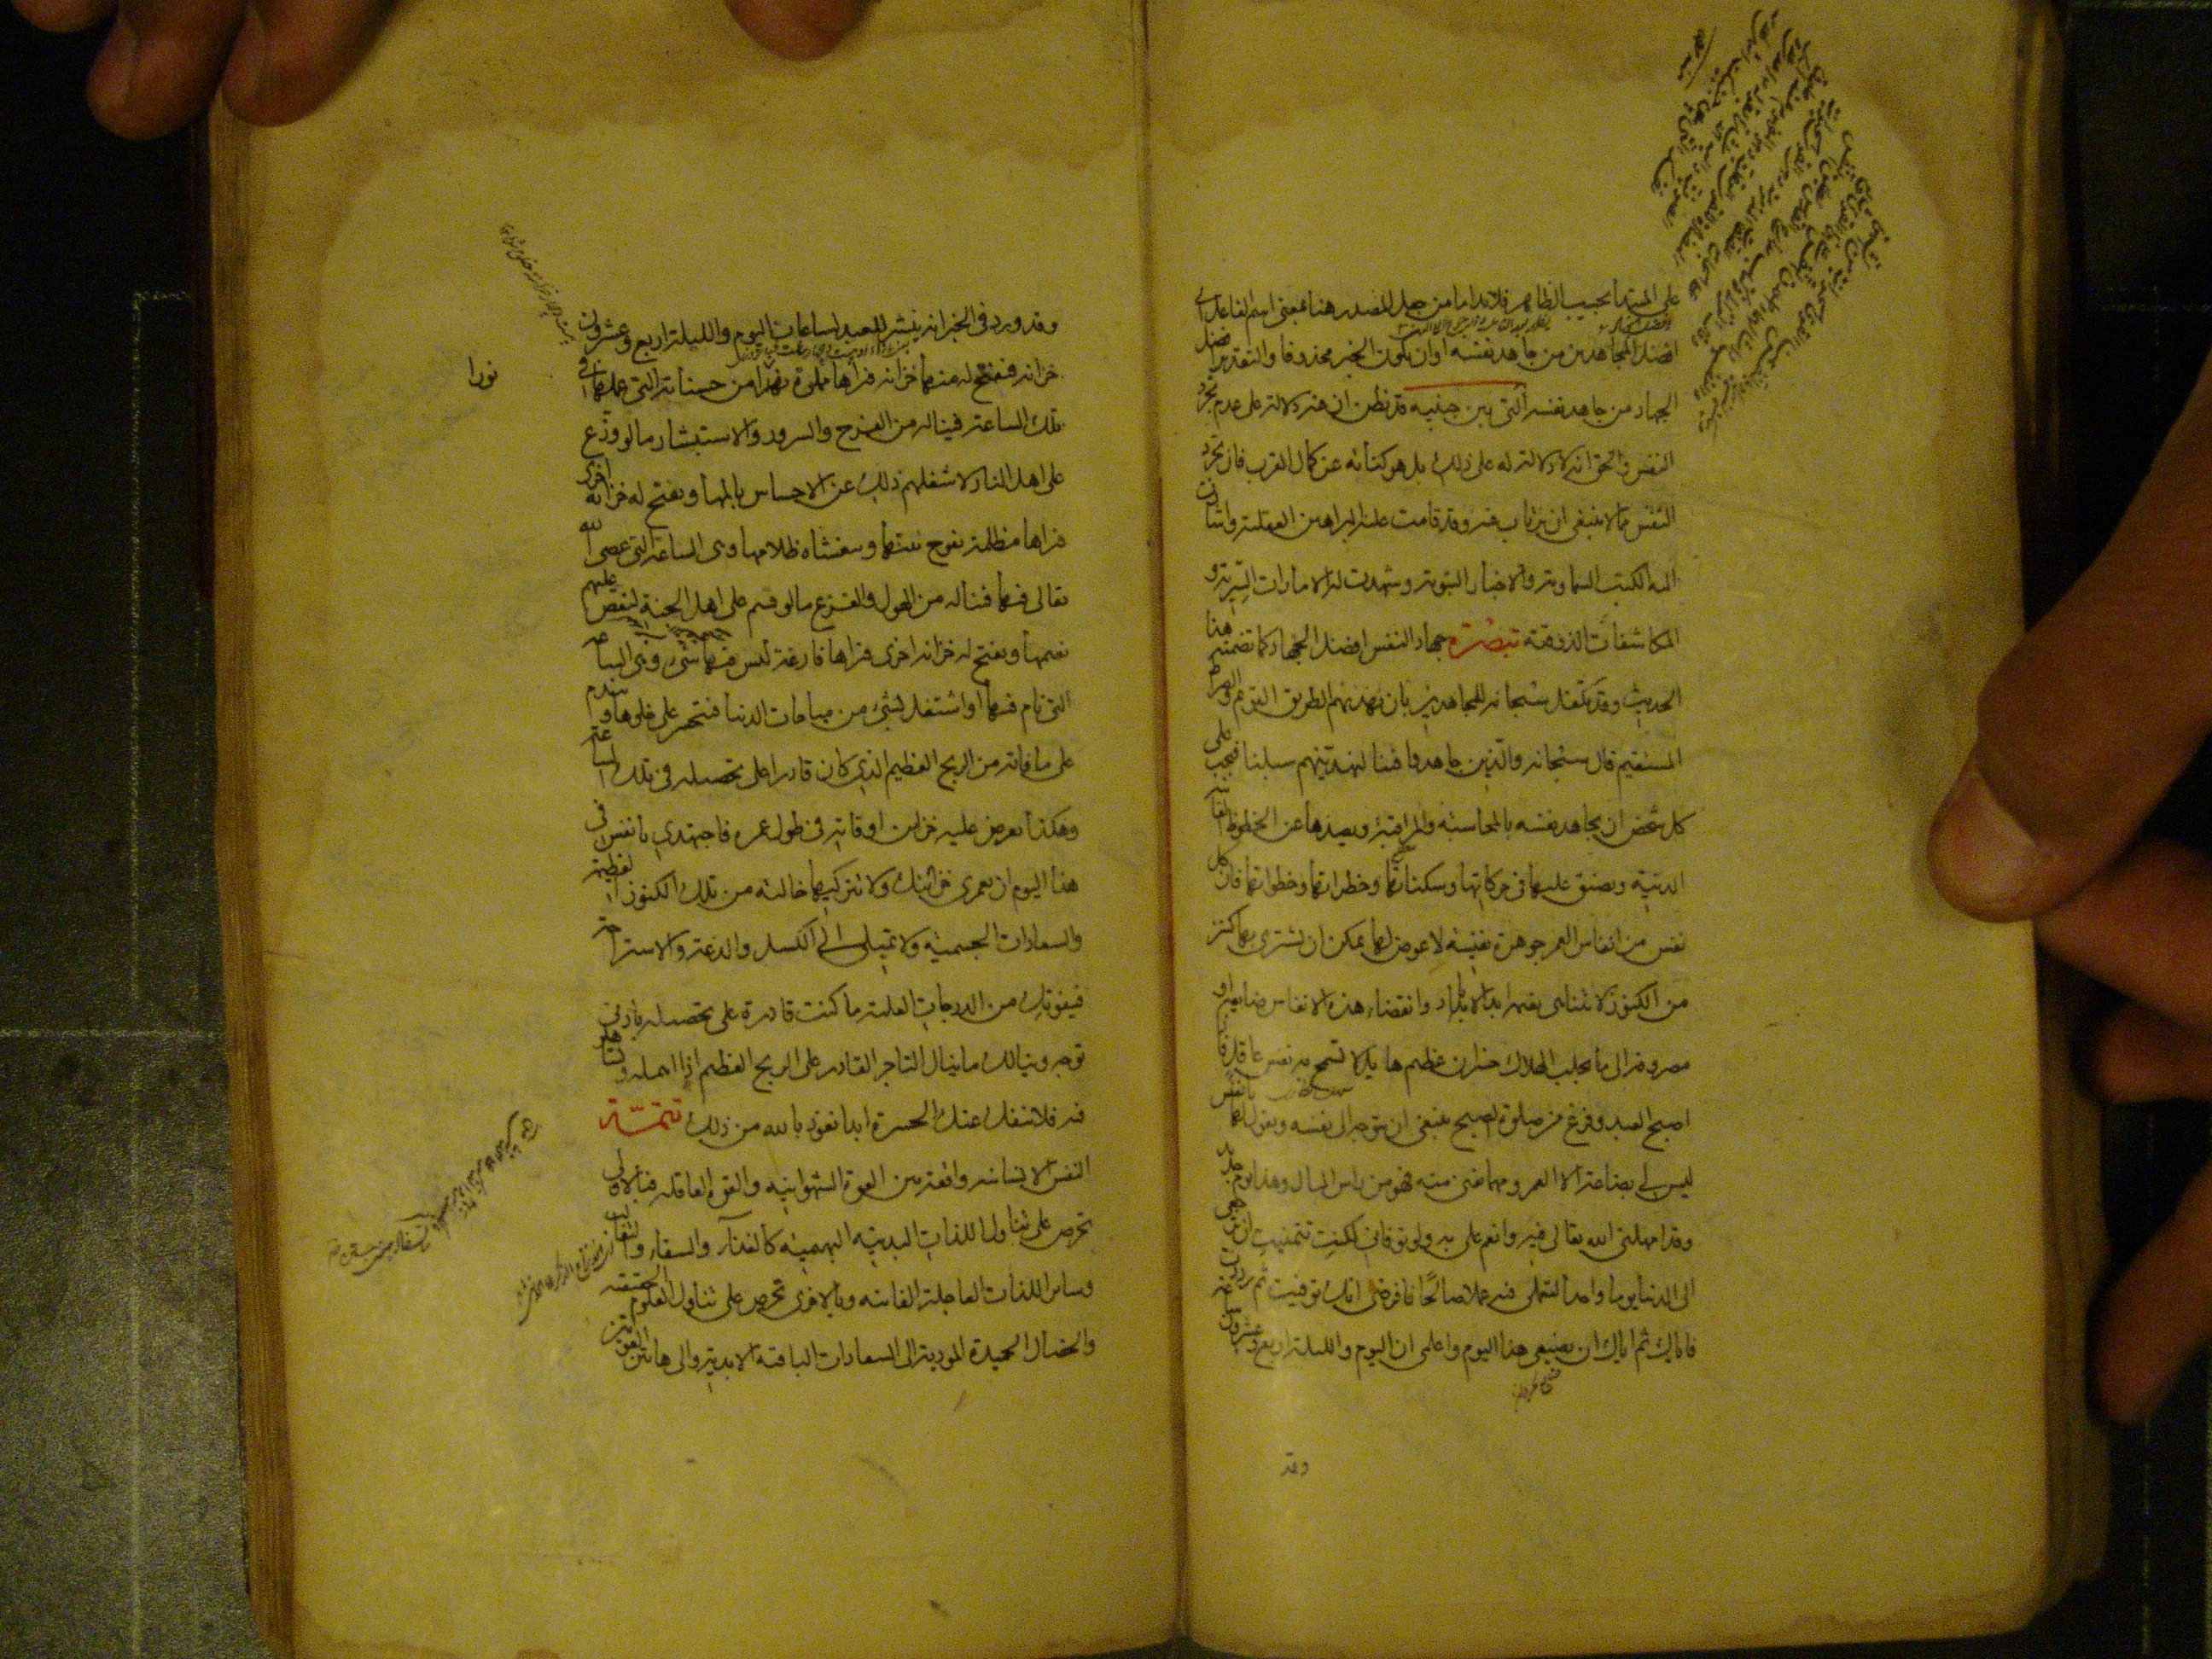 على المبتدأ بحسب الظاهر فلابد اما من جعل المصدر هنا بمعنى اسم الفاعل اى
افضل المجاهدين من جاهد نفسه او ان يكون الخبر محذوفا والتقدير افضل
الجهاد من جاهد نفسه التى بين جنبيه قد يظن ان فيه دلالة على عدم تجرد
النفس والحق انه لا دلالة له على ذلك بل هو كناية عن كمال القرب فان تجرد
النفس مما لا ينبغى ان يرتاب فيه وقد قامت عليه البراهين العقلية واشارت
اليه الكتب السماوية والاخبار النبوية وشهدت له الامارات السرية و
المكاشفات الذوقية تبصرة جهاد النفس افضل الجهاد كما تضمنه هذا
الحديث وقد تكفل سبحانه للمجاهدين بان يهديهم الطريق القويم والصراط
المستقيم قال سبحانه والذين جاهدوا فينا لنهدينهم سبلنا فيجب على
كل شخص ان يجاهد نفسه بالمحاسبة والمراقبة ويصدها عن الحظوظ الفانية
الدنية ويضيق عليها فى حركاتها وسكناتها وخطراتها وخطواتها فان كل
نفس من انفاس العمر جوهرة نفيسة لا عوض لها يمكن ان يشترى بها كنز
من الكنوز لا يتناهى نعيمه ابد الاباد وانقضاء هذه الانفاس ضايعة او
مصروفة الى ما يجلب الهلاك خسران عظيم هايل لا تسمح به نفس عاقل فاذا
اصبح العبد وفرغ من صلوة الصبح ينبغى ان يتوجه الى نفسه ويقول لها يا نفس
ليس لى بضاعة الا العمر ومهما فنى منه فهو من راس المال وهذا يوم جديد
وقد امهلنى الله تعالى فيه وانعم على به ولو توفانى لكنت تتمنين ان ترجعى
الى الدنيا يوما واحدا لتعملى فيه عملا صالحا فافرضى انك توفيت ثم رددت
فاياك ثم اياك ان تضيعى هذا اليوم واعلمى ان اليوم والليلة اربع وعشرون ساعة
وقد
وقد ورد فى الخبر انه ينشر للعبد بساعات اليوم والليلة اربع وعشرون
خزانة فيفتح له منها خزانة فيراها مملوة نورا من حسناته التى عملها فى
نورا
تلك الساعة فيناله من الفرح والسرور والاستبشار ما لو وزع
على اهل النار لاشغلهم ذلك عن الاحساس بالمها ويفتح له خزانة اخرى
فيراها مظلمة يفوح نتنها ويغشاه ظلامها وهى الساعة التى عصى الله
تعالى فيها فيناله من الهول والفزع ما لو قسم على اهل الجنة لنغص عليهم
نعيمها ويفتح له خزانة اخرى فيراها فارغة ليس فيها شىء وهى الساعة
التى نام فيها او اشتغل بشىء من مباحات الدنيا فيتحسر على خلوها ويندم
على ما فاته من الربح العظيم الذى كان قادرا على تحصيله فى تلك الساعة
وهكذا يعرض عليه خزاين اوقاته فى طول عمره فاجتهدى يا نفس فى
هذا اليوم ان تعمرى خزائنك ولا تتركيها خالية من تلك الكنوز العظيمة
والسعادات الجسمية ولا تميلى الى الكسل والدعة والاستراحة
فيفوتك من الدرجات العلية ما كنت قادرة على تحصيله بادنى
توجه وينالك ما ينال التاجر القادر على الربح العظيم اذا اهمله وتساهل
فيه فلا تنفك عنك الحسرة ابدا نعوذ بالله من ذلك تتمة
النفس الانسانية واقعة بين القوة الشهوانية والقوة العاقلة فبالاولى
تحرص على تناول اللذات البدنية البهيمية كالغذاء والسفاد والتغالب
وساير اللذات العاجلة الفانية وبالاخرى تحرص على تناول العلوم الحقيقية
والخصال الحميدة المودية الى السعادات الباقية الابدية والى هاتين القوتين